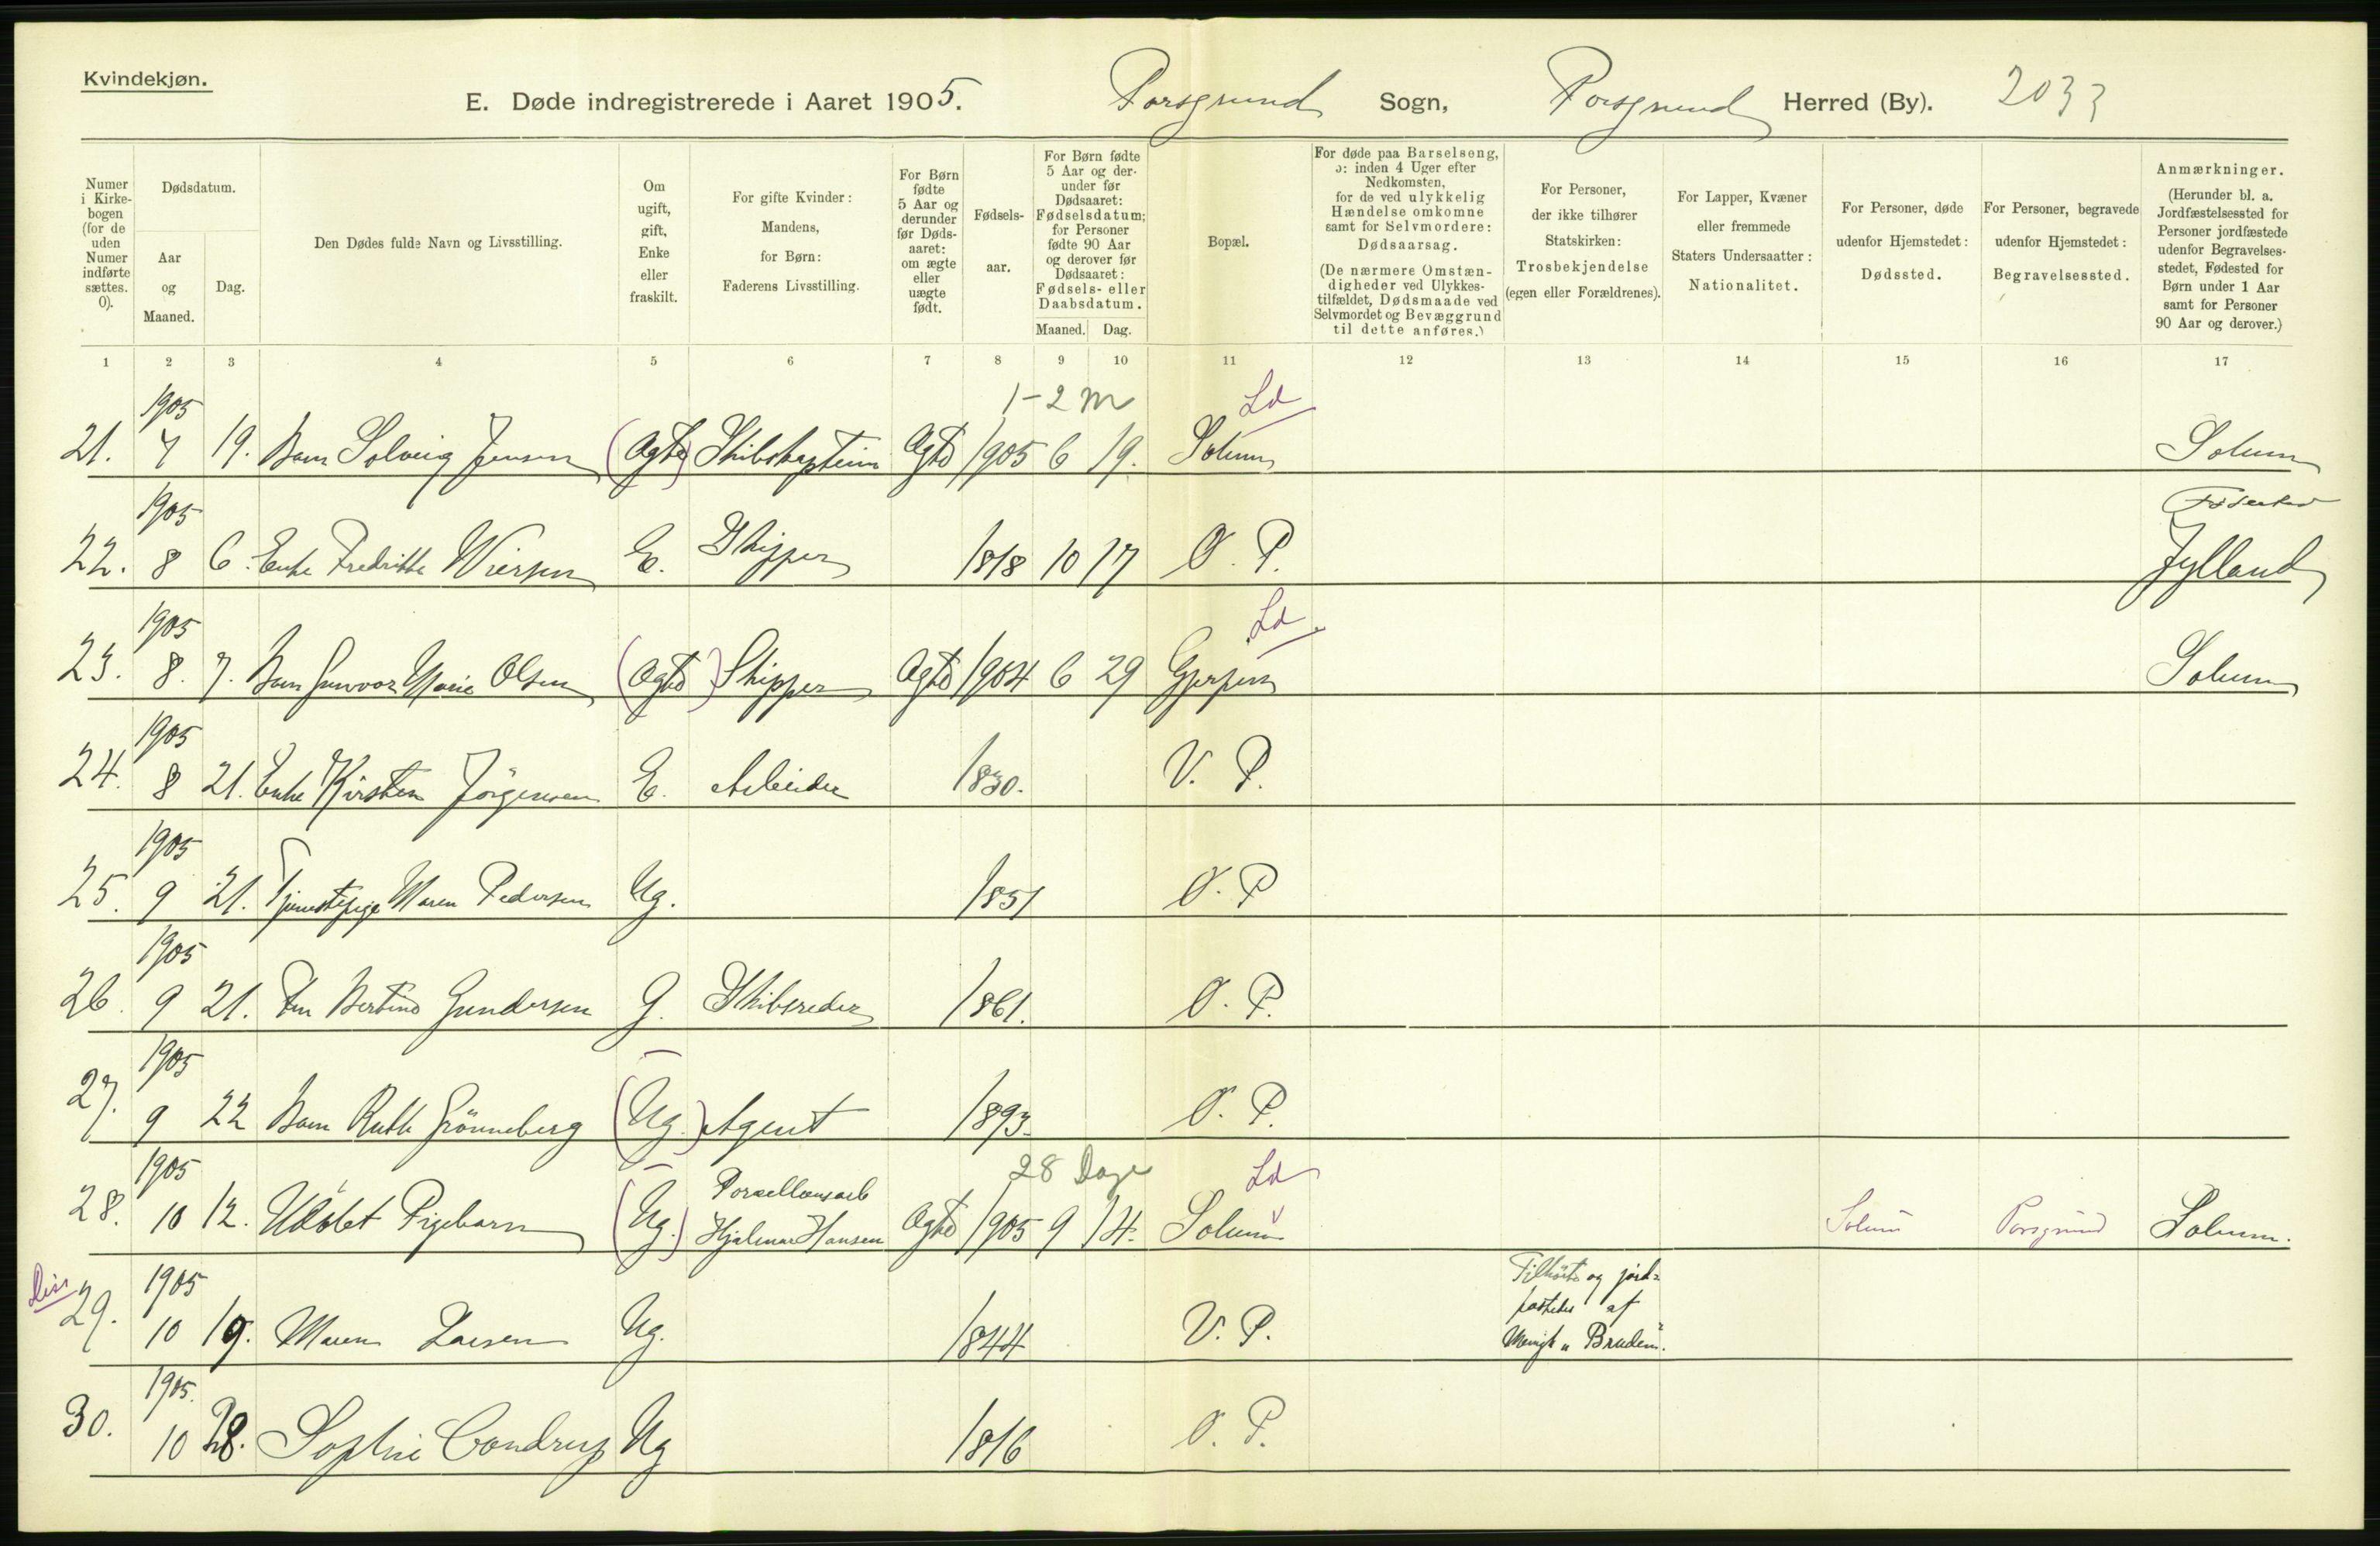 Kvindekjøn.
E. Døde indregistrerede i Aaret 1905. Porsgrund Sogn, Porsgrund Herred (By). 2033
Numer i Kirkebogen (for de uden Numer indførte sættes. 0).
Dødsdatum.
Aar og Maaned.
Dag.
Den Dødes fulde Navn og Livsstilling.
Om ugift, gift, Enke eller fraskilt.
For gifte Kvinder: Mandens, for Børn: Faderens Livsstilling.
For Børn fødte 5 Aar og derunder før Dødsaaret: om ægte eller uægte født.
Fødselsaar.
For Børn fødte 5 Aar og derunder før Dødsaaret: Fødselsdatum; for Personer fødte 90 Aar og derover før Dødsaaret: Fødsels- eller Daabsdatum.
Maaned. Dag.
Bopæl.
For døde paa Barselseng, ɔ: inden 4 Uger efter Nedkomsten, for de ved ulykkelig Hændelse omkomne samt for Selvmordere: Dødsaarsag.
(De nærmere Omstændigheder ved Ulykkestilfældet, Dødsmaade ved Selvmordet og Bevæggrund til dette anføres.)
For Personer, der ikke tilhører Statskirken: Trosbekjendelse (egen eller Forældrenes).
For Lapper, Kvæner eller fremmede Staters Undersaatter: Nationalitet.
For Personer, døde udenfor Hjemstedet: Dødssted.
For Personer, begravede udenfor Hjemstedet: Begravelsessted.
Anmærkninger.
(Herunder bl. a. Jordfæstelsessted for Personer jordfæstede udenfor Begravelsesstedet, Fødested for Børn under 1 Aar samt for Personer 90 Aar og derover.)
1 2 3 4 5 6 7 8 9 10 11 12 13 14 15 16 17
1905 1-2 m Ld
21. 7 19. Barn Solveig Jensen (Ægte) Skibskaptein Ægte 1905 6 19. Solum Solum
1905 Fødested
22. 8 6. Enke Fredrikke Wiersen E. Skipper 1818 10 17 Ø. P. Jylland
1905 Ld
23. 8. 7. Barn Gunvor Marie Olsen (Ægte) Skipper Ægte 1904 6 29 Gjerpen Solum
1905
24. 8 21. Enke Kirsten Jörgensen E. Arbeider 1830. V. P.
1905
25. 9 21. Tjenestepige Maren Pedersen Ug. 1851 Ø. P
1905
26. 9 21. Fru Bertine Gundersen G. Skibsreder 1861. Ø. P.
1905
27. 9 22 Barn Ruth Grönneberg (Ug.) Agent 1893. Ø. P.
1905 Porsellansarb 28 Dage Ld
28. 10 12. Udöbt Pigebarn (Ug.) Hjalmar Hansen Ægte 1905 9 14. Solum Solum Porsgrund Solum.
Diss 1905 Tilhörte og jord-
fæstedes af
29. 10 19. Maren Larsen Ug. 1844 V. P. Menigh „Bruden".
1905.
30. 10 28. Sophie Condrup Ug 1816 Ø. P.